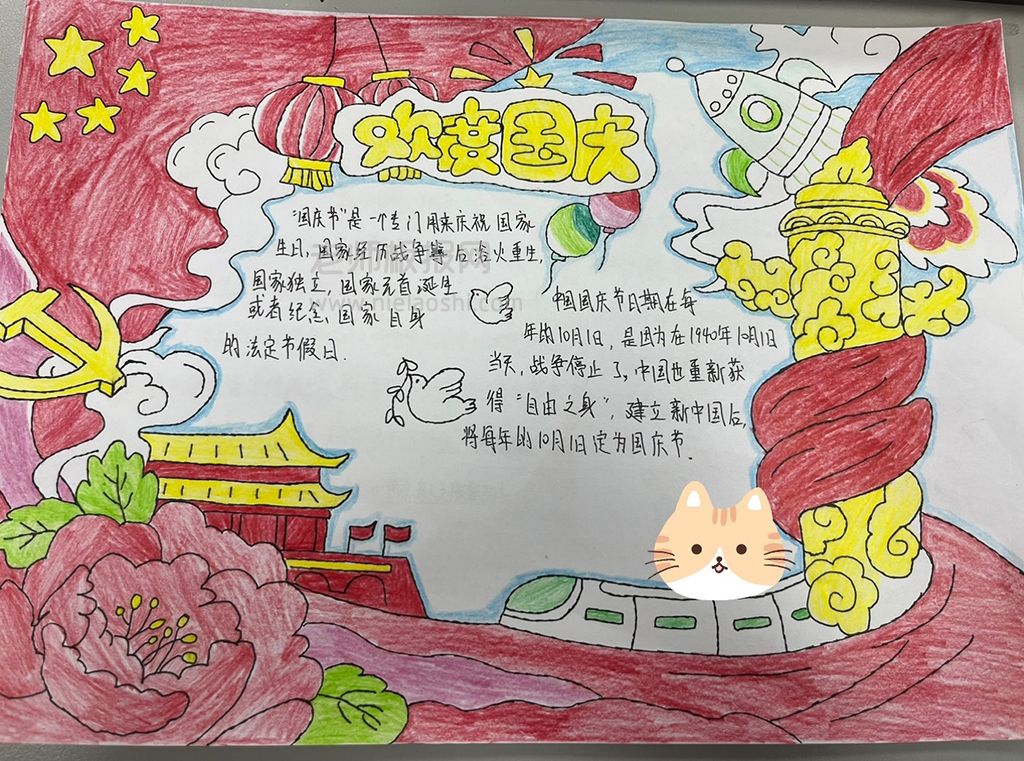 欢度国庆
"国庆节"是一个专门用来庆祝国家
生日,国家经历战争等后浴火重生,
国家独立,国家元首诞生
或者纪念国家自身
的法定节假日.
中国国庆节日期在每
年的10月1日,是因为在1940年10月1日
当天,战争停止了,中国也重新获
得"自由之身",建立新中国后,
将每年的10月1日定为国庆节.
老师板报网
www.nielaoshi.com